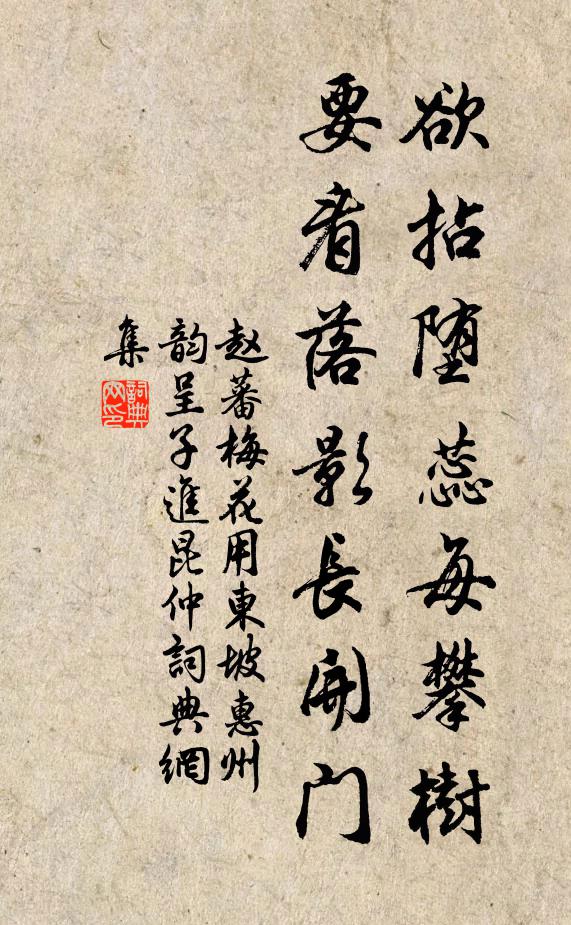 欲拈堕蕊每攀樹
要看落影長開门
赵蕃梅花用東坡惠州
韵呈子進昆仲詞典網
集
詞典网印